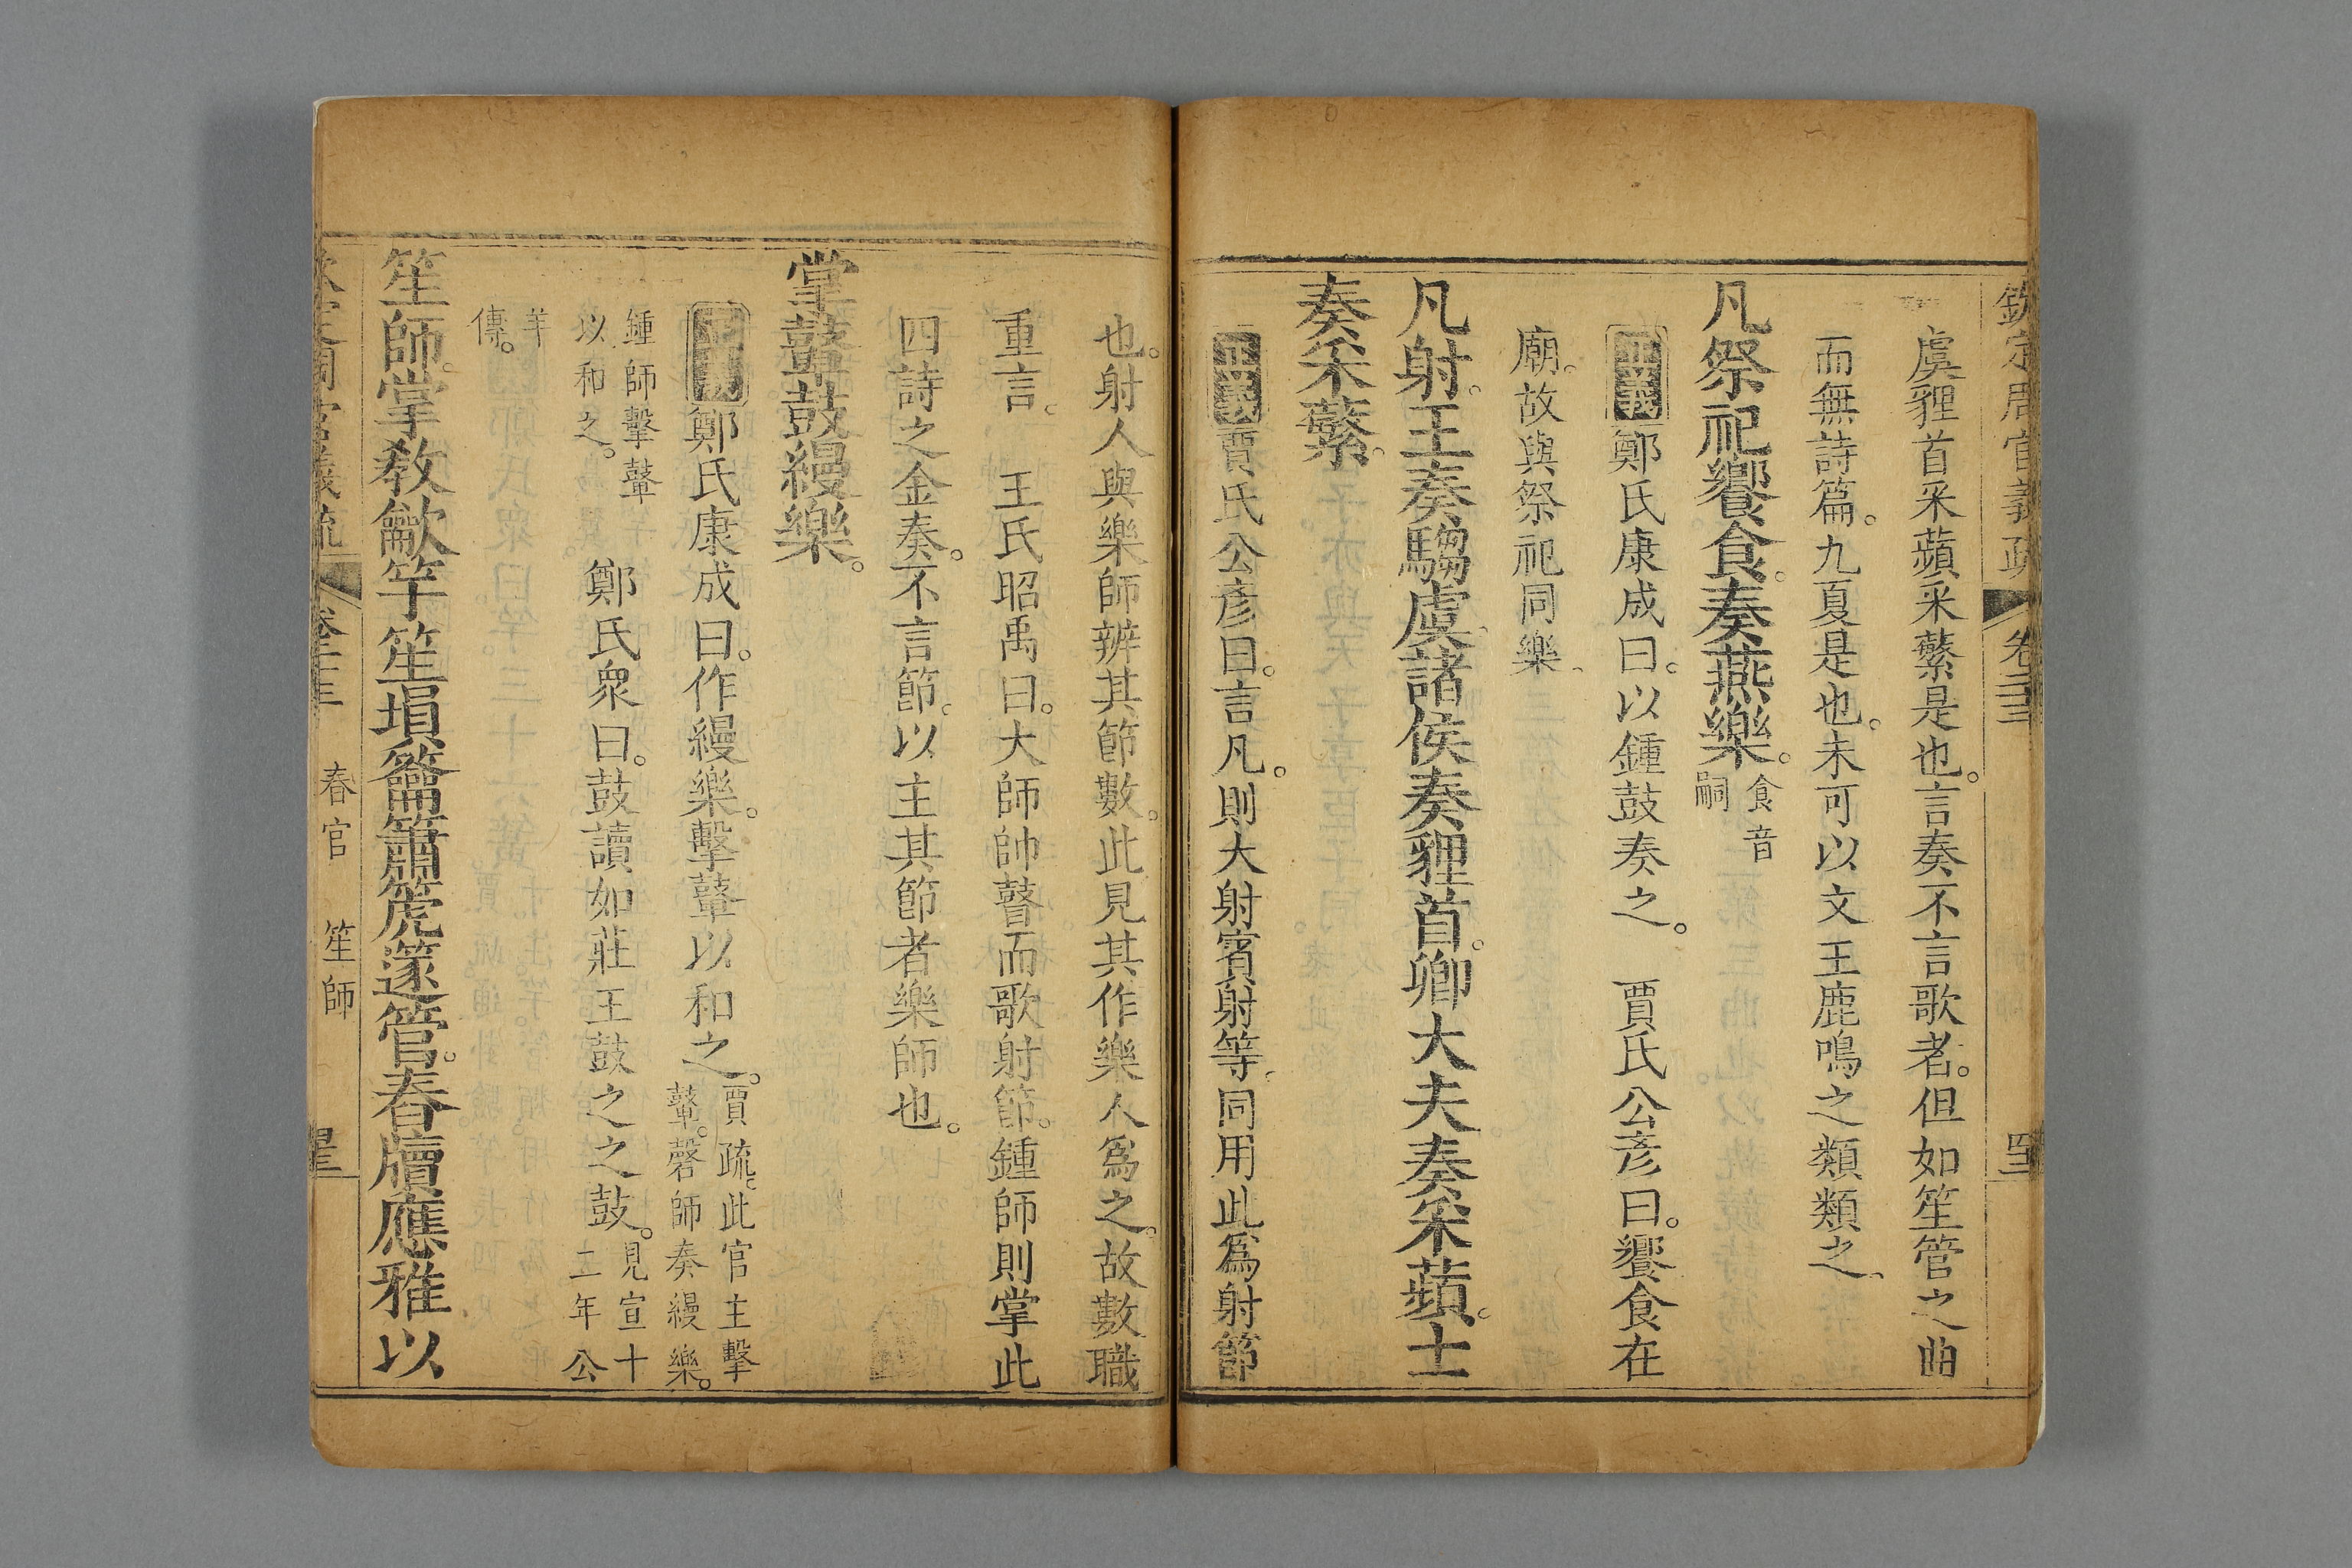 欽定周官義疏 卷二十三 四十三
虞貍首采蘋采蘩是也。言奏不言歌者。但如笙管之曲
而無詩篇。九夏是也。未可以文王鹿鳴之類類之。
凡祭祀饗食。奏燕樂。食音嗣
正義鄭氏康成曰。以鍾鼓奏之。 賈氏公彥曰。饗食在
廟。故與祭祀同樂。
凡射。王奏騶虞。諸侯奏貍首。卿大夫奏采蘋。士
奏采蘩。
正義賈氏公彥曰。言凡。則大射賓射等。同用此爲射節
也。射人與樂師辨其節數。此見其作樂人爲之。故數職
重言。 王氏昭禹曰。大師帥瞽而歌射節。鍾師則掌此
四詩之金奏。不言節。以主其節者樂師也。
掌鼙鼓縵樂。
正義鄭氏康成曰。作縵樂。擊鼙以和之。賈疏。此官主擊鼙。磬師奏縵樂。
鍾師擊鼙以和之。 鄭氏衆曰。鼓讀如莊王鼓之之鼓。見宣十二年公
羊傳。
笙師。掌教龡竽笙塤籥簫篪篴管。舂牘應雅以
春官 笙師